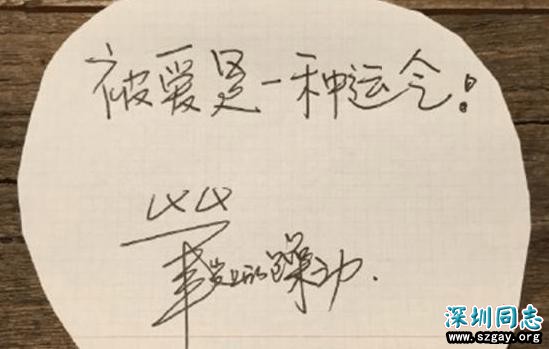 被爱是一种运!
的躁动.
深圳同志
www.szgay.org